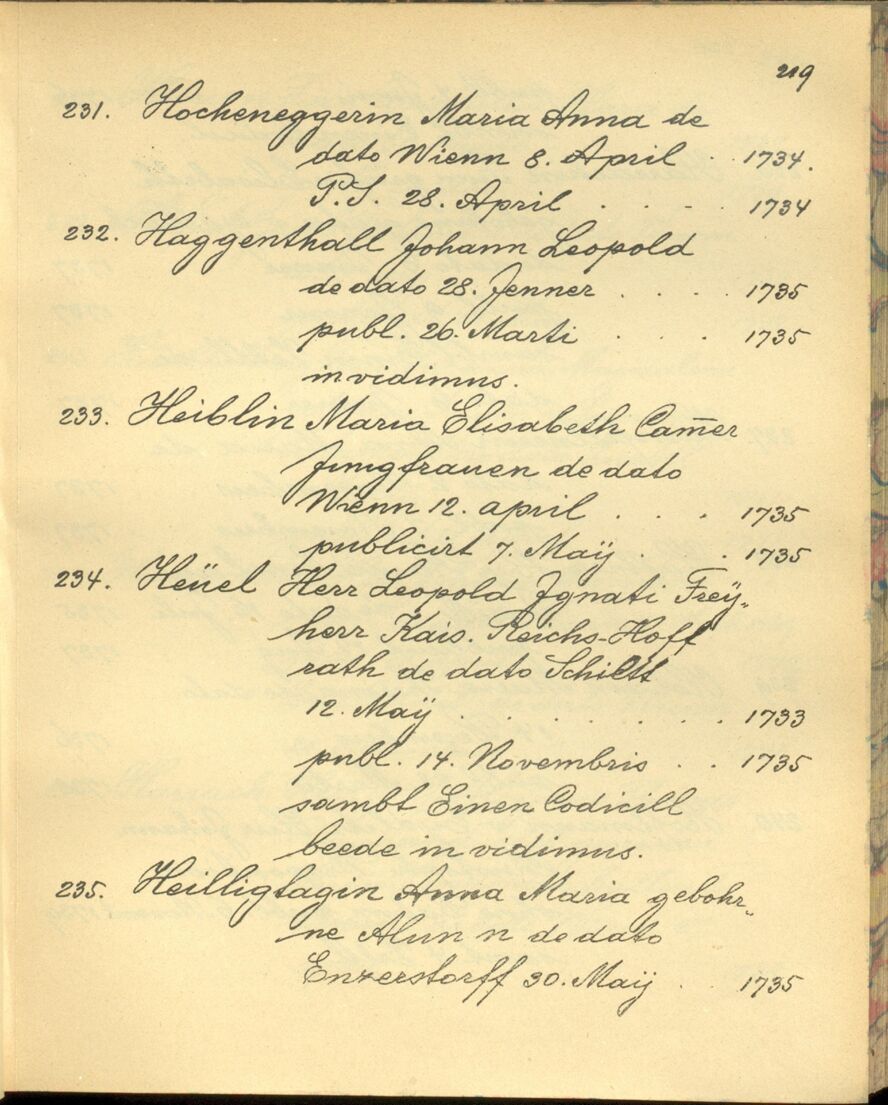 219
231. Hocheneggerin Maria Anna de
dato Wienn 8. April . 1734.
P.S. 28. April . . - . 1734
232. Haggenthall Johann Leopold
de dato 28. Jenner . . . . 1735
publ. 26. Marti . . . 1735
in vidimus.
233. Heiblin Maria Elisabeth Cam̄er
Jungfrauen de dato
Wienn 12. april . . . 1735
publicirt 7. Maÿ . . . 1735
234. Heüel Herr Leopold Ignati Freÿ„
herr Kais. Reichs-Hoff
rath de dato Schiltt
12. Maÿ . . . . . . . 1733
publ. 14. Novembris . . 1735
sambt Einen Codicill
beede in vidimus.
235. Heilligtagin Anna Maria gebohr„
ne de dato
Enzerstorff 30. Maÿ . . 1735